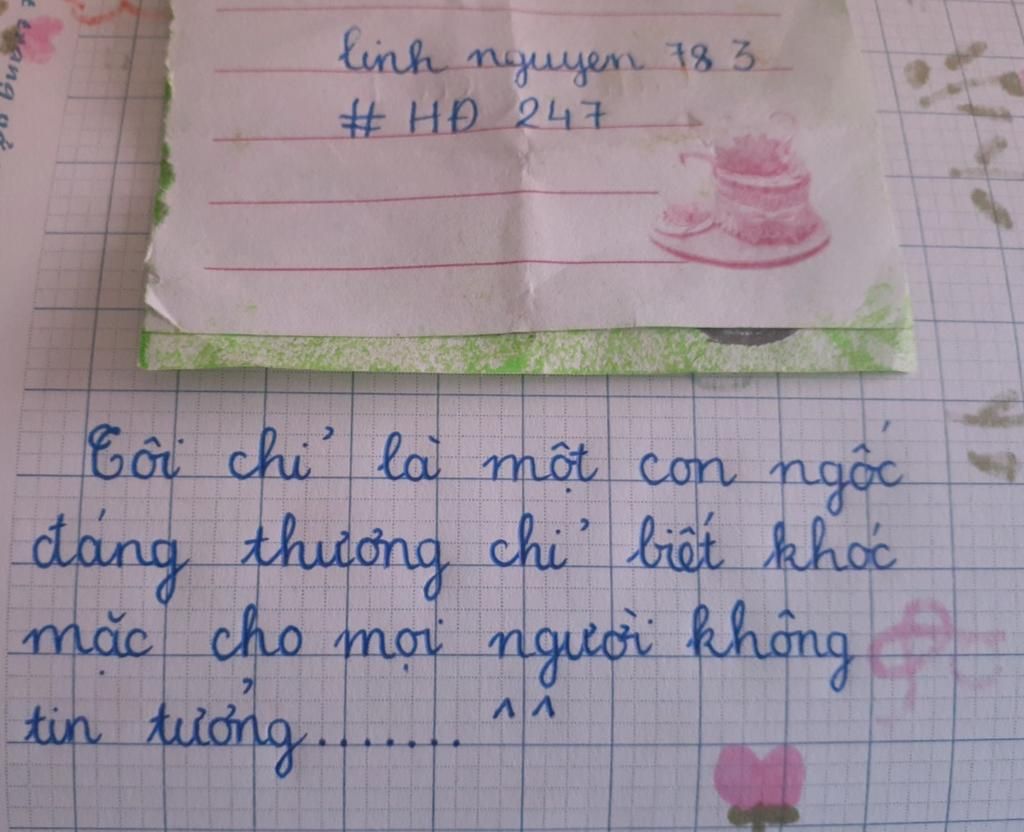 linh nguyen 783
# HĐ 247
Tôi chỉ là một con ngốc
đáng thương chỉ biết khóc
mặc cho mọi người không
tin tưởng....... ^^